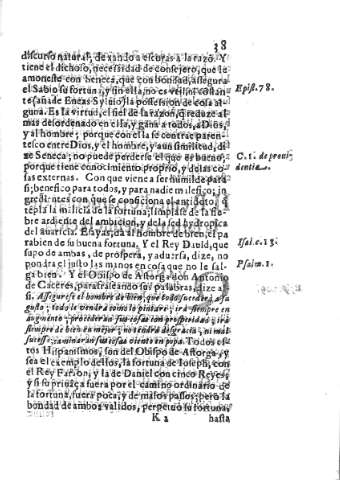 38
discurso natural, dexando a escuras a la razō. Y
tiene el dichoso, necessidad de consejero, que le
amoneste con Seneca, que con bondad, assegura
el Sabio su fortuna, y sin ella, no es vejil, ni constan
te (aña de Eneas Syluio) la possession de cosa al-
guna. Es la virtud, el fiel de la razon, q̄ reduze al
mas desordenado en ella, y gana a todos, a Dios,
y al hombre; porque con ella se contrae paren-
tesco entre Dios, y el hombre, y aun similitud, di
ze Seneca; no puede perderse el que es bueno,
porque tiene conocimiento proprio, y de las co
sas externas. Con que viene a ser humilde para
si; benefico para todos, y para nadie malefico; in
gredientes con que se conficiona el antidoto, q̄
tēpla la malicia de la fortuna; limpiase de la fie-
bre ardiente del ambicion, y de la sed hydropica
del auaricia. Esayas, da al hombre de bien, el pa
rabien de su buena fortuna. Y el Rey Dauid, que
supo de ambas, de prospera, y aduersa, dize, no
pondra el justo las manos en cosa que no le sal-
ga bien. Y el Obispo de Astorga don Antonio
de Caceres, parafraseando sus palabras, dize as
si. Assegurese el hombre de bien, que todo sucedera a su
gusto; todo le vendra como lo pintare; ira siempre en
augmento; procederan sus cosas con prosperidad; ira
siempre de bien en mejor; no tendra desgracia, ni mal
sucesso; caminaran sus cosas viento en popa. Todos es
tos Hispanismos, son del Obispo de Astorga, y
sea el exemplo dellos, la fortuna de Ioseph, con
el Rey Faraon, y la de Daniel con cinco Reyes;
y si su priuāça fuera por el camino ordinario de
la fortuna, fuera poca, y de malos passos; pero la
bondad de ambos validos, perpetuò su fortuna,
K 2 hasta
Epist. 78.
C. 1. de proui
dentia.
Isai. c. 13.
Psalm. 1.